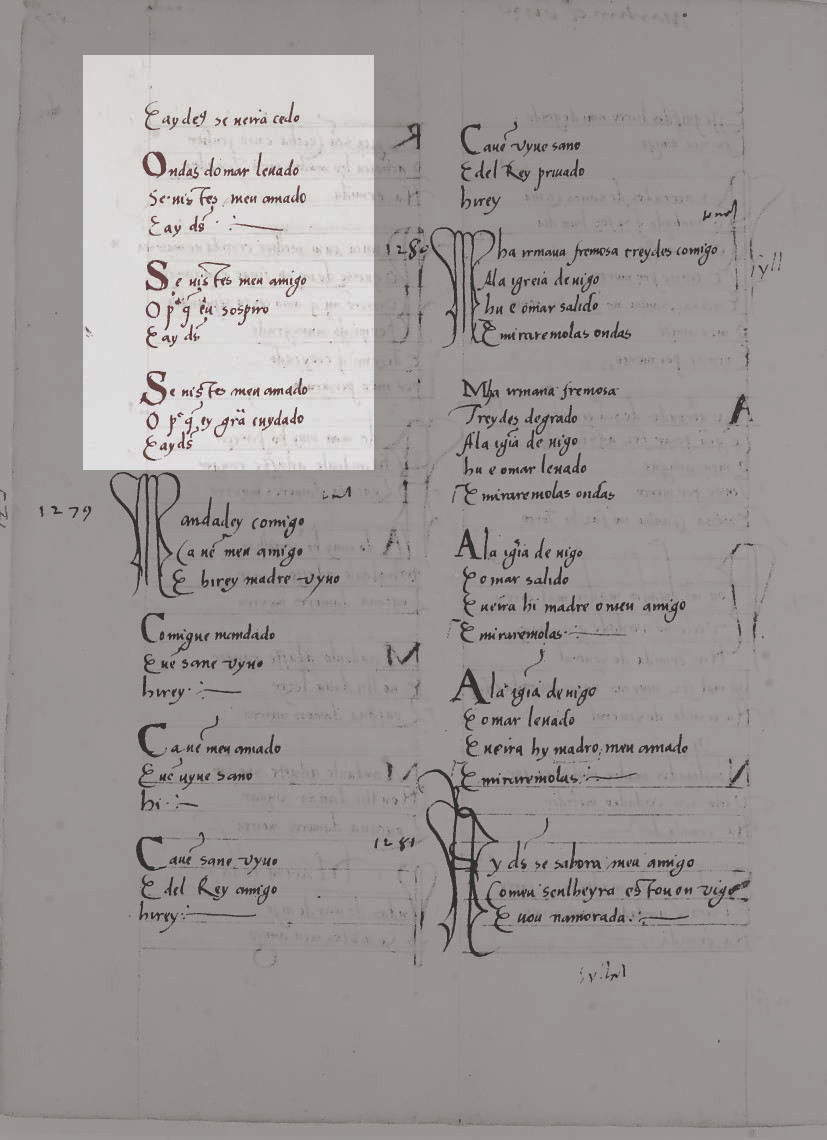 E ay de9 se ueira cedo
Ondas domar leuado
Seuistes meu amado
E ay ds
Se uistes meu amigo
O p̃ q̃ eu sospiro
E ay ds
Se uistes meu amado
O p̃ q̃ ey grã cuydado
E ayds
1279
Mandadey comigo
Ca uẽ meu amigo
E hirey madre uyuo
Comigue mandado
Euẽ sane uyuo
hirey
Ca uẽ meu amado
Euẽ uyue sano
hi
Cauẽ sane uyuo
E del Rey amigo
hirey
Cauẽ uyue sano
Edel Rey priuado
hirey
1280
Mha irmana fremosa treydes comigo
Ala igreia deuigo
hu e omar salido
E miraremolas ondas
Mha irmana fremosa
Treydes degrado
Ala igia de uigo
hu e omar leuado
E miraremolas ondas
Ala igia de uigo
E o mar salido
E ueira hi madre o meu amigo
E miraremolas
Ala igia deuigo
E o mar leuado
E ueira hy madre, meu amado
E miraremolas
1281
Ay ds se sabora meu amigo
Comeu senlheyra estou en uigo
E uou namorada